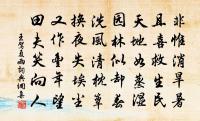 非惟消旱暑
且喜救生民
天地如蒸湿
园林似却春
洗风清枕簟
换夜失埃尘
又作丰年望
田夫笑向人
王驾夏雨